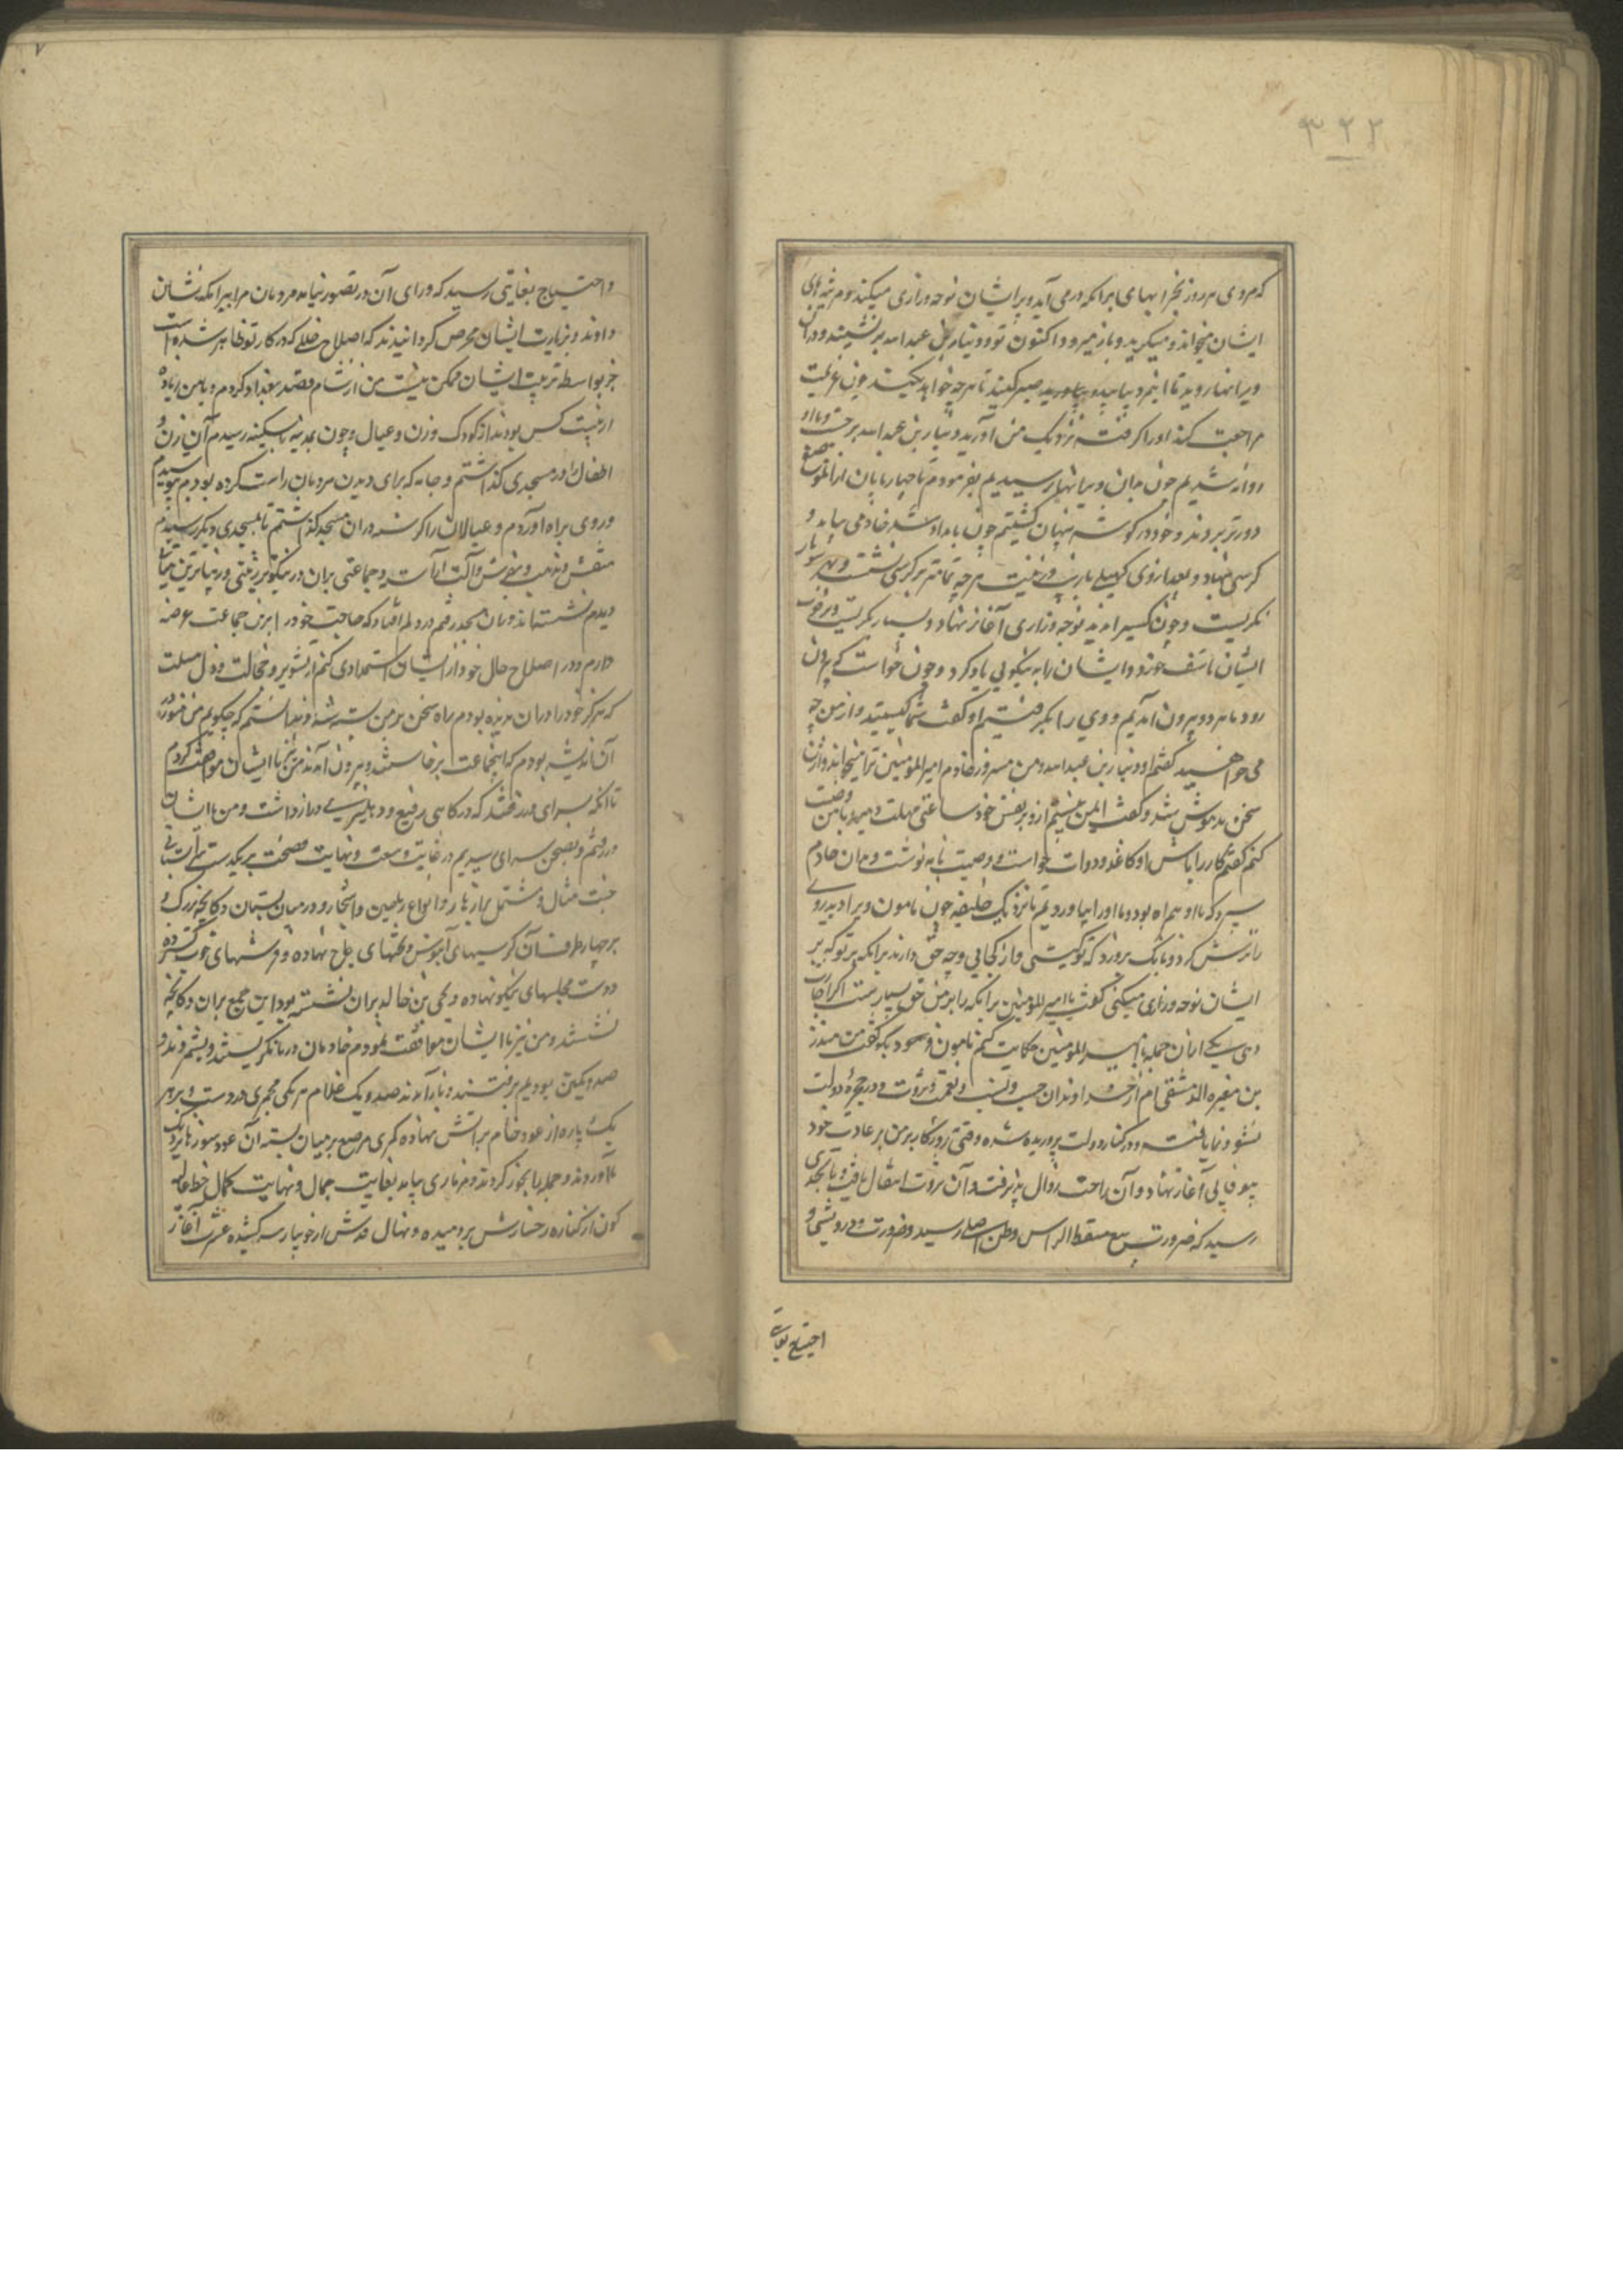 ۳۲۲
که مردی هر روز بخرابهای برامکه درمی آید و بر ایشان نوحه و زاری میکند و مرثیه های
ایشان میخواند و میگرید و باز میرود و اکنون تو و دینار بن عبدالله بر نشینید و در آن
ویرانها روید تا آن مرد بیاید و صبر کنید تا هرچه خواهد بکند چون عزیمت
مراجعت کند او را گرفته نزدیک من آورید دینار بن عبدالله برخاست و با او
روانه شدیم چون بدان ویرانها رسیدیم بفرمودم تا چهارپایان از آن موضع
دورتر بردند و خود در گوشه پنهان گشتیم چون بامداد شد خادمی بیامد و
کرسی بنهاد و بعد از وی کهلی با زینت هرچه تمامتر بر کرسی نشست و بهر سو
نگریست و چون کسی را ندید نوحه و زاری آغاز نهاد و بسیار بگریست و بر فوت
ایشان تاسف خورد و ایشان را به نیکویی یاد کرد و چون خواست که بیرون
رود ما هر دو بیرون آمدیم و وی را بگرفتیم او گفت شما کیستید و از من چه
می خواهید گفتم او دینار بن عبدالله و من مسرور خادم امیرالمؤمنین ترا میخواند و از این
سخن مدهوش شد و گفت ایمن نیستم ازو بر نفس خود ساعتی مهلت دهید تا من وصیت
کنم گفتم کار را باش او کاغذ و دوات خواست و وصیت نامه نوشت و بدان خادم
سپرد که با او همراه بود و ما او را بیاوردیم تا نزدیک خلیفه چون مامون ویرا دید روی
را ترش کرد و بانگ برو زد که تو کیستی و از کجایی و چه حق دارند برامکه بر تو که بر
ایشان نوحه و زاری میکنی گفت یا امیرالمؤمنین برامکه را بر من حق بسیارست اگر اجازت
دهی یکی از آن جمله با امیرالمؤمنین حکایت کنم مامون فرمود بگو گفت من منذر
بن مغیره الدمشقی ام از خداوندان حسب و نسب و نعمت و ثروت و در حجره دولت
نشو و نما یافته و در کنار دولت پرورده شده وقتی روزگار بر من بر عادت خود
بیوفایی آغاز نهاد و آن راحت زوال پذیرفت و آن ثروت انتقال یافت و بحدی
رسید که ضرورت ببیع مسقط الراس و وطن اصلی رسید و ضرورت و درویشی و
احتیاج بغایتی
۷
و احتیاج بغایتی رسید که ورای آن در تصور نیاید مردمان مرا ببرامکه نشان
دادند و بزیارت ایشان محرص گردانیدند که اصلاح خللی که در کار تو ظاهر شده است
جز بواسطه تربیت ایشان ممکن نیست من از شام قصد بغداد کردم و با من زیاده
از بیست کس بودند از کودک و زن و عیال و چون بمدینه السکینه رسیدم آن زن و
اطفال را در مسجدی گذاشتم و جامه که برای دیدن مردمان راست کرده بودم بپوشیدم
و روی براه آوردم و عیالان را گرسنه در آن مسجد گذاشتم تا بمسجدی دیگر رسیدم
منقش و مذهب و بفرش و آلت آراسته و جماعتی بران در نیکوتر زینتی و زیباترین هیأتی
دیدم نشسته اند و بان مسجد رفتم در دلم افتاد که حاجت خود را برین جماعت عرضه
دارم و در اصلاح حال خود از ایشان استمدادی کنم از تشویر و خجالت و ذل مسئلت
که هرگز خود را در آن ندیده بودم راه سخن بر من بسته شد و ندانستم که چگویم من هنوز در
آن اندیشه بودم که آنجماعت برخاستند و بیرون آمدند من نیز با ایشان موافقت کردم
تا آنکه بسرای در رفتند که درگاهی رفیع و دهلیزی دراز داشت و من با ایشان
در رفتم و بصحن سرای رسیدیم در غایت وسعت و نهایت فسحت بر یکدست سرای بستانی
جنت مثال و مشتمل بر ازهار و انواع ریاحین و اشجار و در میان بستان دکانچه بزرگ و
بر چهار طرف آن کرسیهای آبنوس و تختهای عاج نهاده و فرشهای خوب گسترده
و دست مجلسهای نیکو نهاده و یحیی بن خالد بران نشسته بود این جمع بران دکانچه
نشستند و من نیز با ایشان موافقت نمودم خادمان در ما نگریستند و بشمردند
صد و یکتن بودیم برفتند و باز آمدند صد و یک غلام هر یکی مجمری در دست و بر هر
یک پاره از عود خام بر آتش نهاده کمری مرصع بر میان بسته آن عود سوزها نزدیک
ما آوردند و جمله را بخور کردند و بیامد بغایت جمال و نهایت کمال خط غالیه
گون از کناره رخسارش بردمیده و نهال قدش از جویبار سر کشیده عشرت آغاز